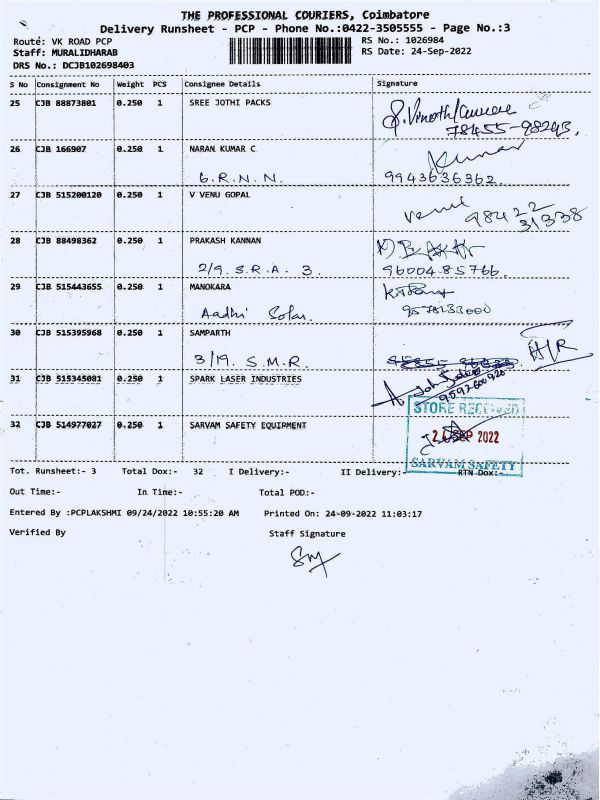 THE PROFESSIONAL COURIERS, Coimbatore
Delivery Runsheet - PCP - Phone No.:0422-3505555 - Page No.:3
Route: VK ROAD PCP RS No.: 1026984
Staff: MURALIDHARAB RS Date: 24-Sep-2022
DRS No.: DCJB102698403
S No Consignment No Weight PCS Consignee Details Signature
25 CJB 88873801 0.250 1 SREE JOTHI PACKS
78455-98293.
26 CJB 166907 0.250 1 NARAN KUMAR C Kumar
6. R. N. N. 9943636362.
27 CJB 515200120 0.250 1 V VENU GOPAL Venu 98422
31338
28 CJB 88498362 0.250 1 PRAKASH KANNAN
2/9. S. R. A. 3. 9600485766.
29 CJB 515443655 0.250 1 MANOKARA
Aadhi Solar.
30 CJB 515395968 0.250 1 SAMPARTH
3/19. S. M. R.
31 CJB 515345081 0.250 1 SPARK LASER INDUSTRIES
STORE RECEIVED
32 CJB 514977027 0.250 1 SARVAM SAFETY EQUIPMENT 24 SEP 2022
SARVAM SAFETY
Tot. Runsheet:- 3 Total Dox:- 32 I Delivery:- II Delivery:- RTN Dox:-
Out Time:- In Time:- Total POD:-
Entered By :PCPLAKSHMI 09/24/2022 10:55:20 AM Printed On: 24-09-2022 11:03:17
Verified By Staff Signature